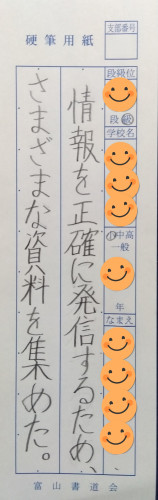 硬筆用紙
支部番号
段級位
段 級
学校名
小中高
一般
年
なまえ
情報を正確に発信するため、
さまざまな資料を集めた。
富山書道会